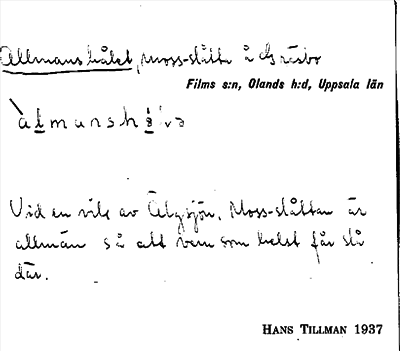 Allmanshålet, moss-slåtte å Gräsbo
Films s:n, Olands h:d, Uppsala län
Vid en vik av Älgsjön. Moss-slåttan är
allmän så att vem som helst får slå
där.
HANS TILLMAN 1937